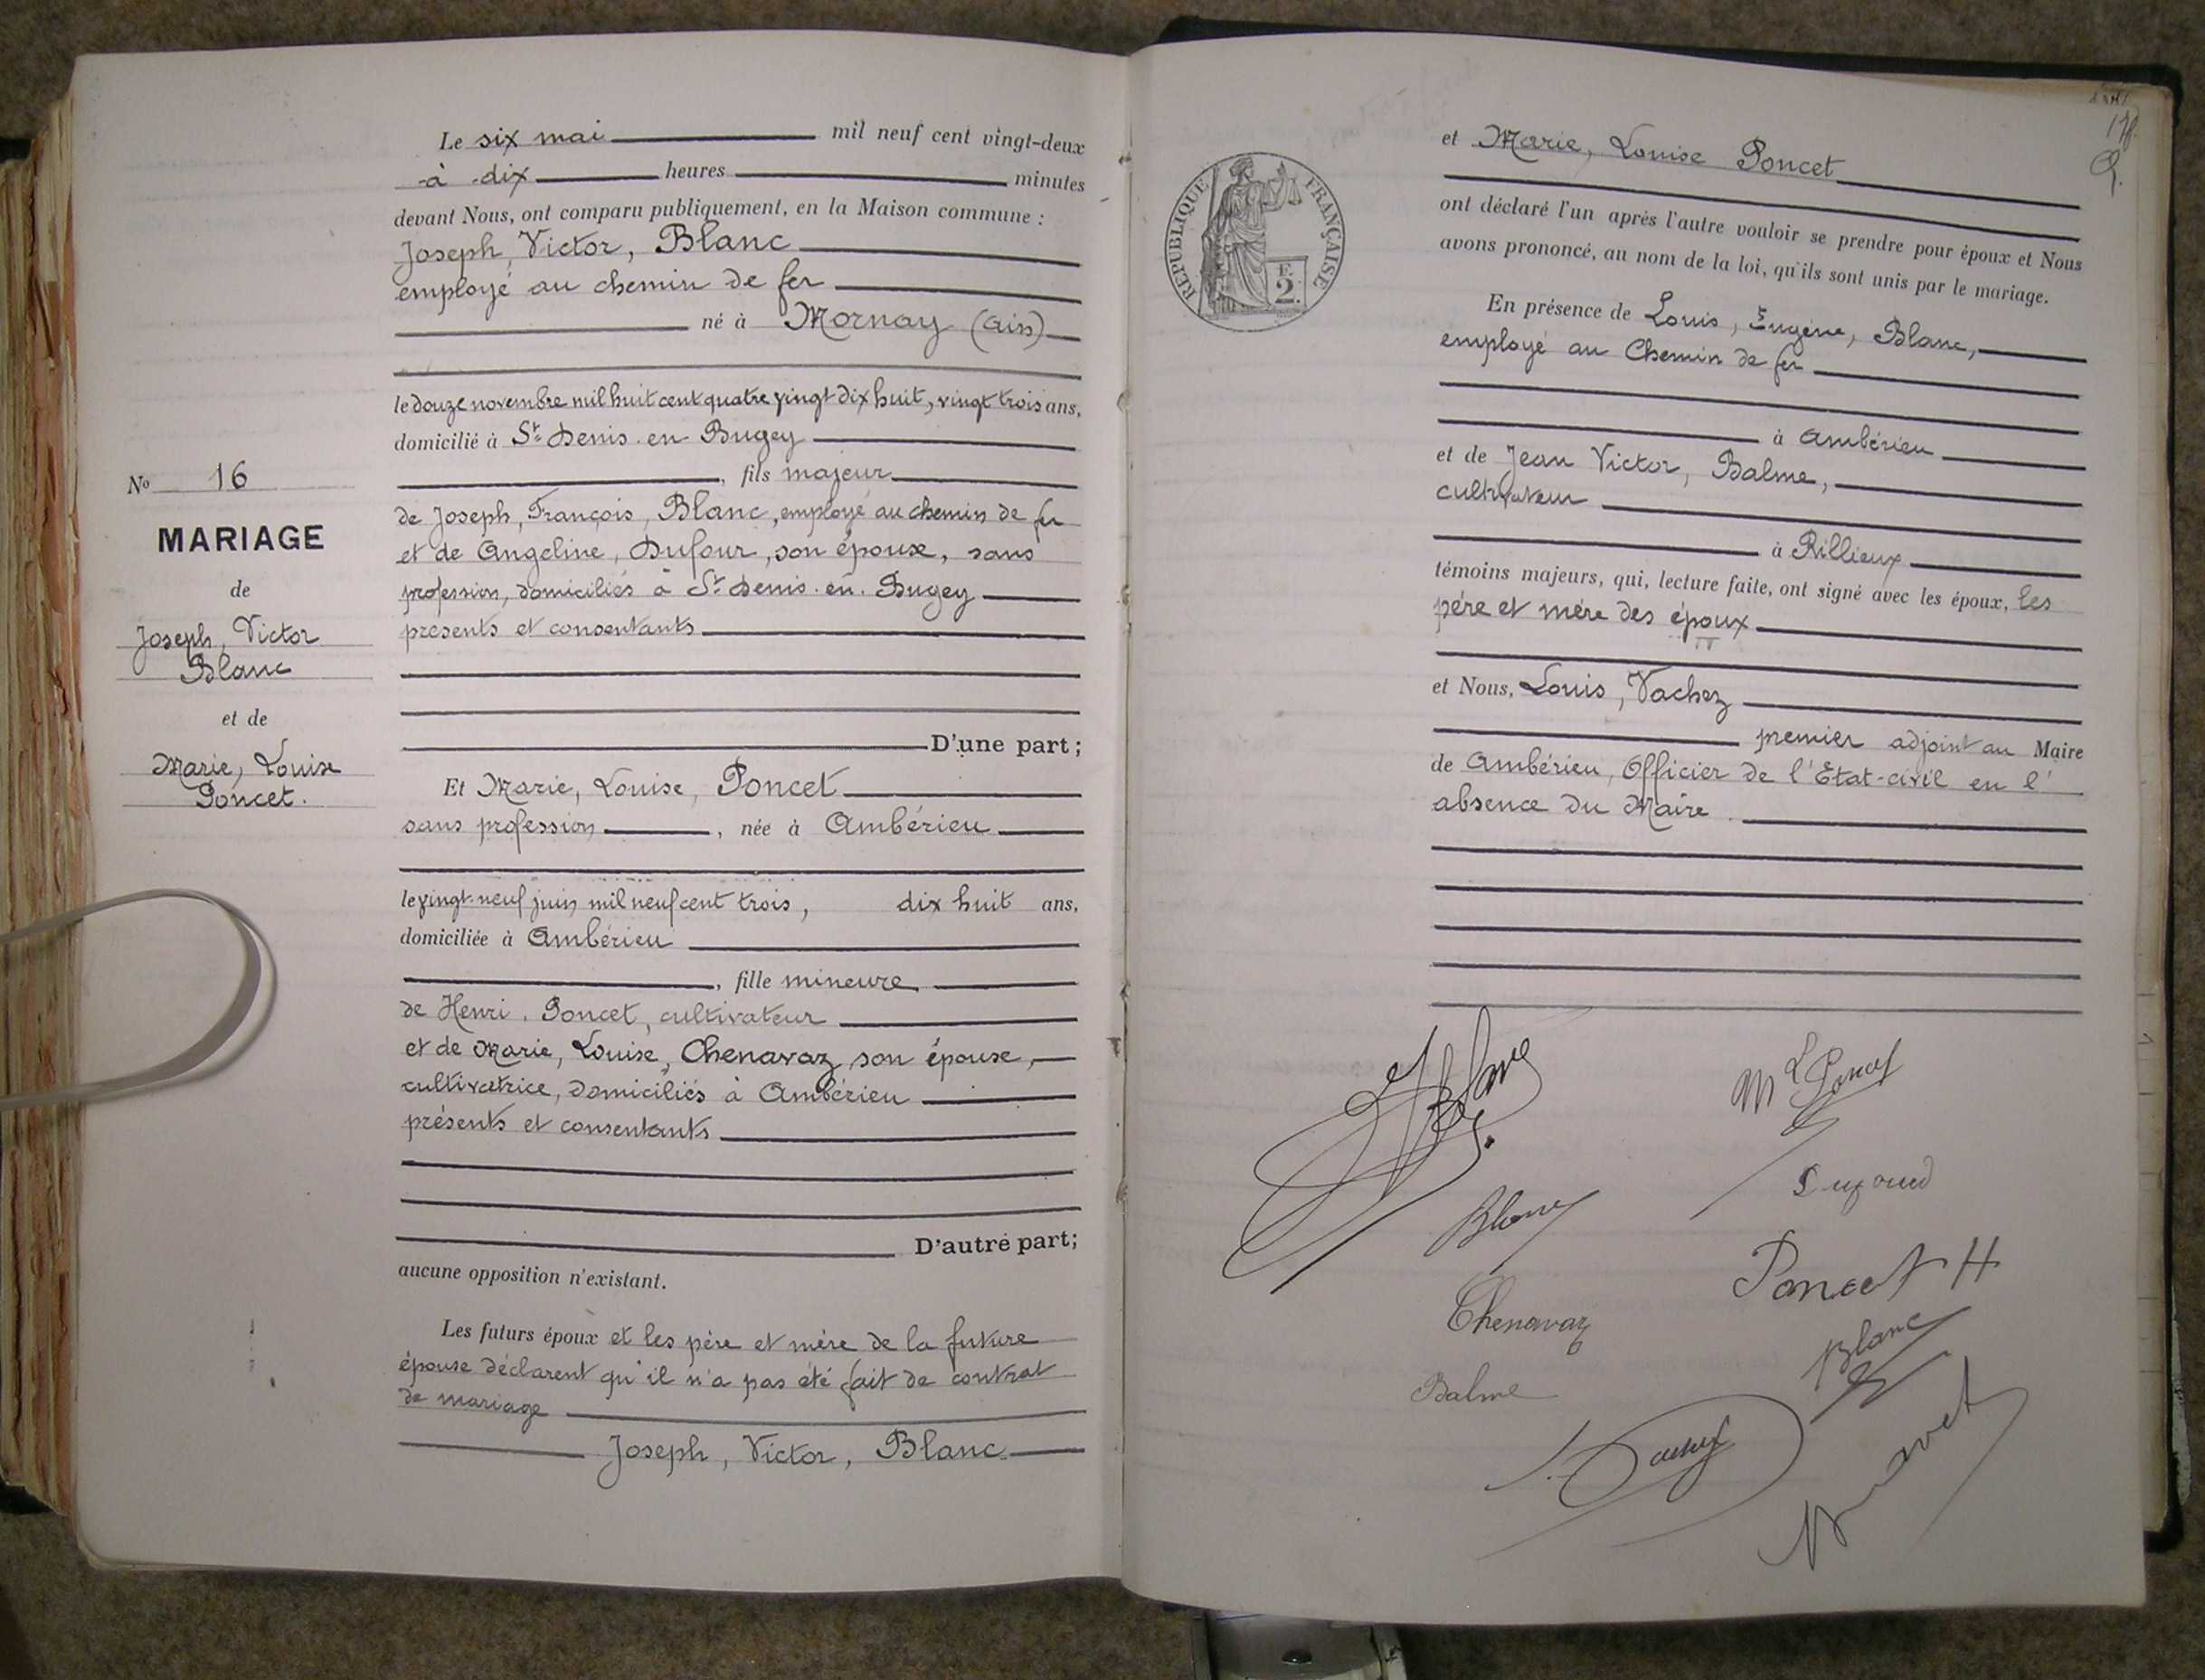 Le six mai mil neuf cent vingt-deux
à dix heures minutes
devant Nous, ont comparu publiquement, en la Maison commune :
Joseph, Victor, Blanc
employé au chemin de fer
né à Mornay (Ain)
le douze novembre mil huit cent quatre vingt dix huit, vingt trois ans,
domicilié à St Denis en Bugey
, fils majeur
de Joseph, François, Blanc, employé au chemin de fer
et de Angeline, Dufour, son épouse, sans
profession, domiciliés à St Denis en Bugey
présents et consentants
D'une part;
Et Marie, Louise, Poncet
sans profession, née à Ambérieu
le vingt-neuf juin mil neuf cent trois, dix huit ans,
domiciliée à Ambérieu
, fille mineure
de Henri, Poncet, cultivateur
et de Marie, Louise, Chenavaz, son épouse,
cultivatrice, domiciliés à Ambérieu
présents et consentants
D'autre part;
aucune opposition n'existant.
Les futurs époux et les père et mère de la future
épouse déclarent qu'il n'a pas été fait de contrat
de mariage
Joseph, Victor, Blanc
No 16
MARIAGE
de
Joseph, Victor
Blanc
et de
Marie, Louise
Poncet.
RÉPUBLIQUE FRANÇAISE
F.
2.
et Marie, Louise Poncet
ont déclaré l'un après l'autre vouloir se prendre pour époux et Nous
avons prononcé, au nom de la loi, qu'ils sont unis par le mariage.
En présence de Louis, Eugène, Blanc,
employé au Chemin de fer
à Ambérieu
et de Jean Victor, Balme,
cultivateur
à Rillieux
témoins majeurs, qui, lecture faite, ont signé avec les époux, les
père et mère des époux
et Nous, Louis, Vachez
premier adjoint au Maire
de Ambérieu, Officier de l'Etat-civil en l'
absence du Maire.
Blanc
M L Poncet
Blanc
Poncet H
Chenavaz
Blanc
Balme